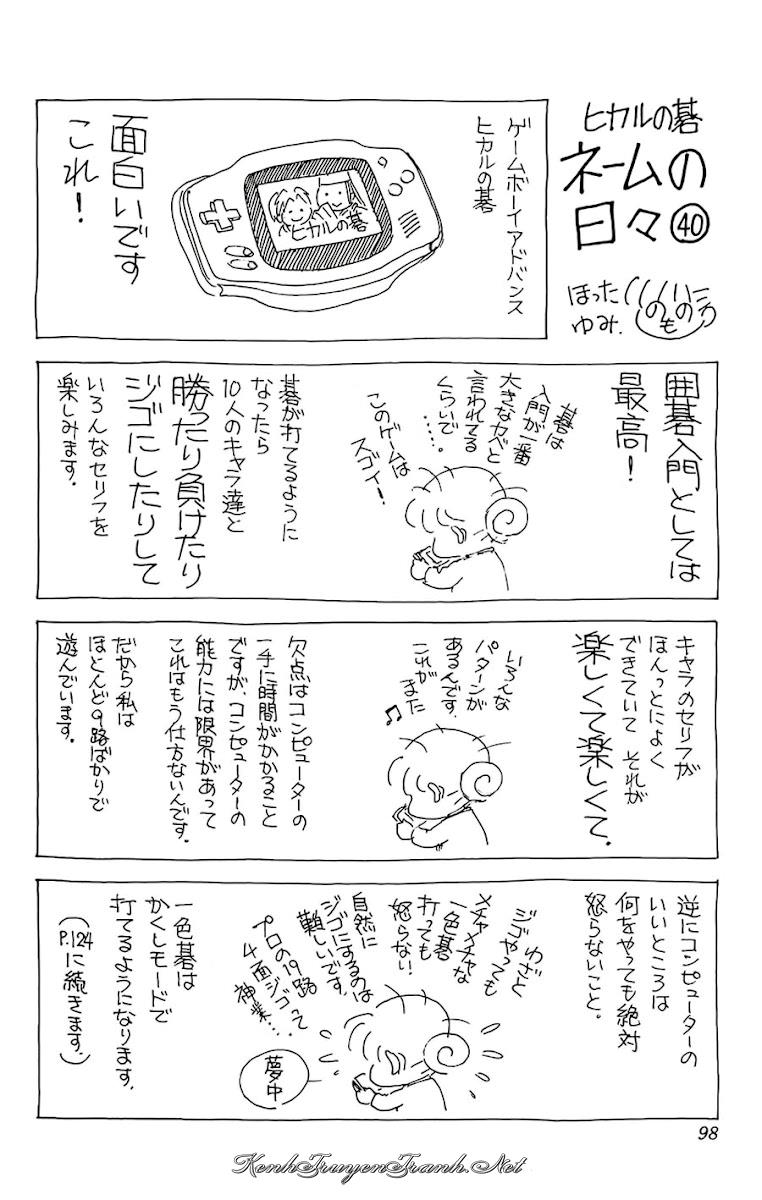 ヒカルの碁
ネームの
日々㊵
ほった
ゆみ.
ゲームボーイアドバンス
ヒカルの碁
ヒカルの碁
面白いです
これ!
囲碁入門としては
最高!
碁は
入門が一番
大きなカベと
言われてる
くらいで
・・・・。
このゲームは
スゴイ!
碁が打てるように
なったら
10人のキャラ達と
勝ったり負けたり
ジゴにしたりして
いろんなセリフを
楽しみます。
キャラのセリフが
ほんっとによく
できていて それが
楽しくて楽しくて。
いろんな
パターンが
あるんです.
これが
また
♫
欠点はコンピューターの
一手に時間がかかること
ですが、コンピューターの
能力には限界があって
これはもう仕方ないんです。
だから私は
ほとんど9路ばかりで
遊んでいます。
逆にコンピューターの
いいところは
何をやっても絶対
怒らないこと。
わざと
ジゴやっても
メチャメチャな
一色碁
打っても
怒らない!
自然に
ジゴにするのは
難しいです。
プロの19路
4面ジゴって
神業・・・.
夢中
一色碁は
かくしモードで
打てるようになります.
(P.124に続きます。)
98
KenhTruyenTranh.Net